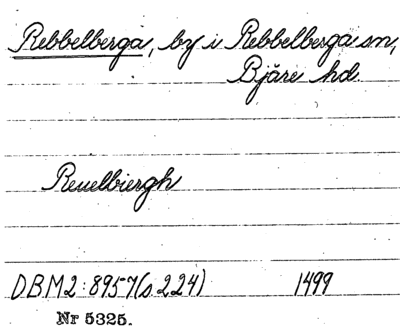 Rebbelberga, by i Rebbelberga sn,
Bjäre hd.
Reuelbiergh
DBM2:8957(s.224) 1499
Nr 5325.